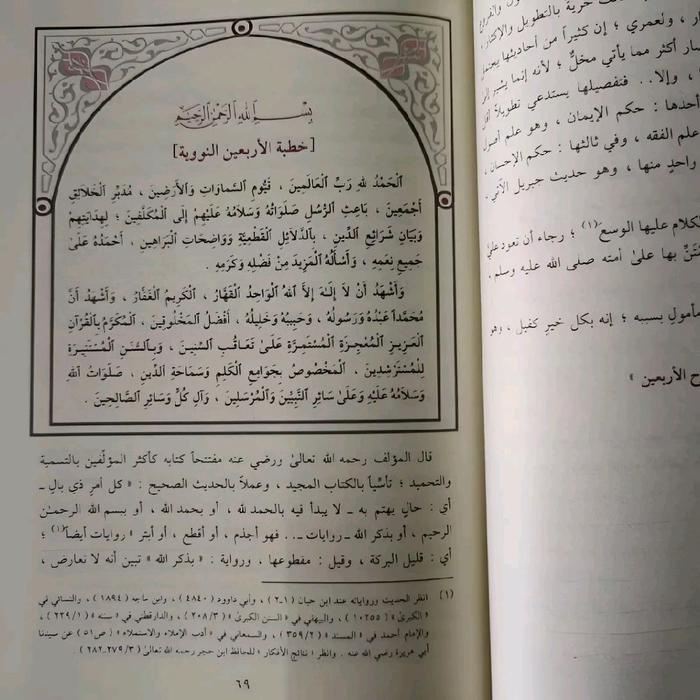 بِسْمِ اللَّهِ الرَّحْمَٰنِ الرَّحِيمِ
[خطبة الأربعين النووية]
اَلْحَمْدُ للهِ رَبِّ الْعَالَمِينَ ، قَيُّومِ السَّمَاوَاتِ وَالأَرَضِينَ ، مُدَبِّرِ الْخَلاَئِقِ
أَجْمَعِينَ ، بَاعِثِ الرُّسُلِ صَلَوَاتُهُ وَسَلاَمُهُ عَلَيْهِمْ إِلَى الْمُكَلَّفِينَ ؛ لِهِدَايَتِهِمْ
وَبَيَانِ شَرَائِعِ الدِّينِ ، بِالدَّلاَئِلِ الْقَطْعِيَّةِ وَوَاضِحَاتِ الْبَرَاهِينِ ، أَحْمَدُهُ عَلَىٰ
جَمِيعِ نِعَمِهِ ، وَأَسْأَلُهُ الْمَزِيدَ مِنْ فَضْلِهِ وَكَرَمِهِ .
وَأَشْهَدُ أَنْ لاَ إِلَـٰهَ إِلاَّ اللهُ الْوَاحِدُ الْقَهَّارُ ، الْكَرِيمُ الْغَفَّارُ ، وَأَشْهَدُ أَنَّ
مُحَمَّداً عَبْدُهُ وَرَسُولُهُ ، وَحَبِيبُهُ وَخَلِيلُهُ ، أَفْضَلُ الْمَخْلُوقِينَ ، الْمُكَرَّمُ بِالْقُرْآنِ
الْعَزِيزِ الْمُعْجِزَةِ الْمُسْتَمِرَّةِ عَلَىٰ تَعَاقُبِ السِّنِينَ ، وَبِالسُّنَنِ الْمُسْتَنِيرَةِ
لِلْمُسْتَرْشِدِينَ ، الْمَخْصُوصُ بِجَوَامِعِ الْكَلِمِ وَسَمَاحَةِ الدِّينِ ، صَلَوَاتُ اللهِ
وَسَلاَمُهُ عَلَيْهِ وَعَلَىٰ سَائِرِ النَّبِيِّينَ وَالْمُرْسَلِينَ ، وَآلِ كُلٍّ وَسَائِرِ الصَّالِحِينَ .
قال المؤلف رحمه الله تعالىٰ ورضي عنه مفتتحاً كتابه كأكثر المؤلّفين بالتسمية
والتحميد ؛ تأسّياً بالكتاب المجيد ، وعملاً بالحديث الصحيح : « كل أمرٍ ذي بال ـ
أي : حالٍ يهتم به ـ لا يبدأ فيه بالحمد لله ، أو بحمد الله ، أو ببسم الله الرحمـٰن
الرحيم ، أو بذكر الله ـ روايات ـ.. فهو أجذم ، أو أقطع ، أو أبتر » روايات أيضاً(١) ؛
أي : قليل البركة ، وقيل : مقطوعها ، ورواية : « بذكر الله » تبين أنه لا تعارض ،
(١) انظر الحديث ورواياته عند ابن حبان (١ـ٢) ، وأبي داوود (٤٨٤٠) ، وابن ماجه (١٨٩٤) ، والنسائي في
« الكبرىٰ » (١٠٢٥٥) ، والبيهقي في « السنن الكبرىٰ » (٢٠٨/٣) ، والدارقطني في « سننه » (٢٢٩/١) ،
والإمام أحمد في « المسند » (٣٥٩/٢) ، والسمعاني في « أدب الإملاء والاستملاء » (ص٥١) عن سيدنا
أبي هريرة رضي الله عنه . وانظر « نتائج الأفكار » للحافظ ابن حجر رحمه الله تعالىٰ (٢٧٩/٣ـ٢٨٢) .
٦٩
حرية بالتطويل والإكثار ،
، ولعمري ؛ إن كثيراً من أحاديثها يحتمل
أكثر مما يأتي مخلٌّ ؛ لأنه إنما يشير إلى
، وإلا.. فتفصيلها يستدعي تطويلاً
أحدها : حكم الإيمان ، وهو علم أصول
علم الفقه ، وفي ثالثها : حكم الإحسان ،
واحدٍ منها ، وهو حديث جبريل الآتي ،
الكلام عليها الوسع(١) ؛ رجاء أن تعود عليّ
بها علىٰ أمته صلى الله عليه وسلم ،
مأمولٍ بسببه ؛ إنه بكل خيرٍ كفيل ، وهو
ح الأربعين »